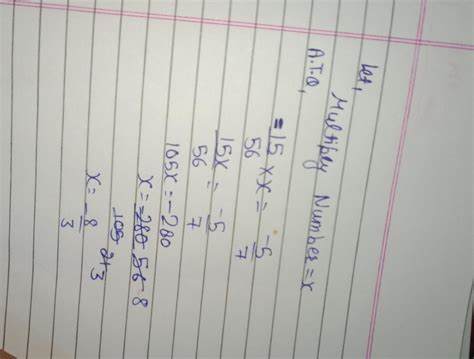 let, Multiply Number = x
A.T.Q,
= 15/56 × x = -5/7
15x/56 = -5/7
105x = -280
x = -280 56 8
105 21 3
x = -8/3